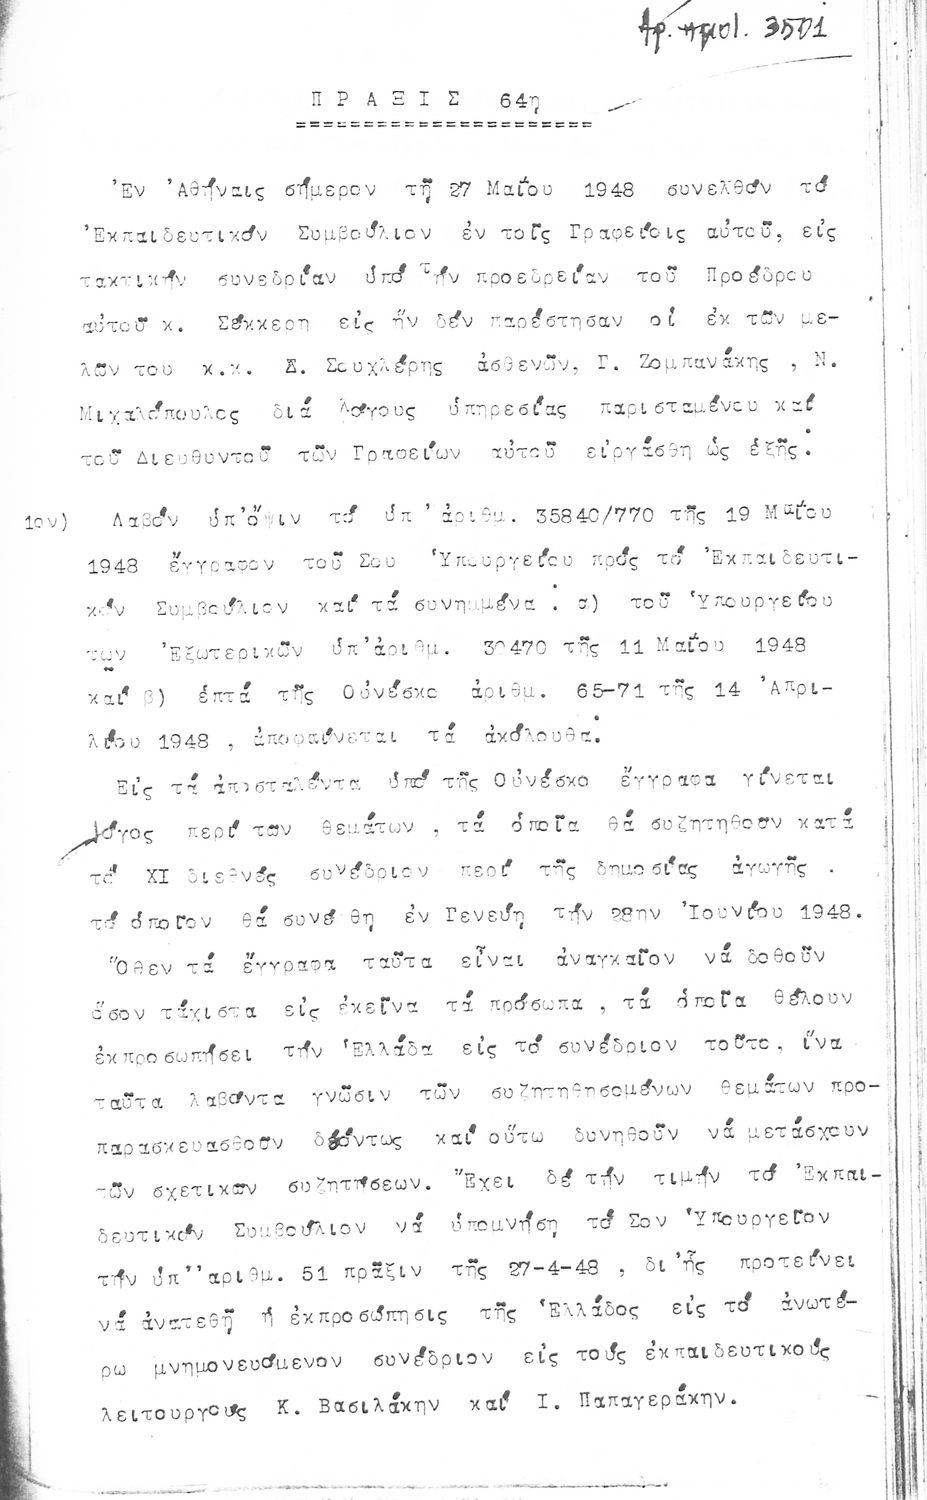 Ἀρ. πρωτ. 3501
ΠΡΑΞΙΣ 64η
Ἐν Ἀθήναις σήμερον τῇ 27 Μαΐου 1948 συνελθόν τό
Ἐκπαιδευτικόν Συμβούλιον ἐν τοῖς Γραφείοις αὐτοῦ, εἰς
τακτικήν συνεδρίαν ὑπό τήν προεδρείαν τοῦ Προέδρου
αὐτοῦ κ. Σέκκερη εἰς ἥν δέν παρέστησαν οἱ ἐκ τῶν με-
λῶν του κ.κ. Σ. Σουχλέρης ἀσθενῶν, Γ. Ζομπανάκης , Ν.
Μιχαλόπουλος διά λόγους ὑπηρεσίας παρισταμένου καί
τοῦ Διευθυντοῦ τῶν Γραφείων αὐτοῦ εἰργάσθη ὡς ἑξῆς:
1ον) Λαβόν ὑπ'ὄψιν τό ὑπ' ἀριθμ. 35840/770 τῆς 19 Μαΐου
1948 ἔγγραφον τοῦ Σου Ὑπουργείου πρός τό Ἐκπαιδευτι-
κόν Συμβούλιον καί τά συνημμένα : α) τοῦ Ὑπουργείου
τῶν Ἐξωτερικῶν ὑπ'ἀριθμ. 30470 τῆς 11 Μαΐου 1948
καί β) ἑπτά τῆς Οὐνέσκο ἀριθμ. 65-71 τῆς 14 Ἀπρι-
λίου 1948 , ἀποφαίνεται τά ἀκόλουθα:
Εἰς τά ἀποσταλέντα ὑπό τῆς Οὐνέσκο ἔγγραφα γίνεται
λόγος περί των θεμάτων , τά ὁποῖα θά συζητηθοῦν κατά
τό XI διεθνές συνέδριον περί τῆς δημοσίας ἀγωγῆς .
τό ὁποῖον θά συνέλθη ἐν Γενεύη τήν 28ην Ἰουνίου 1948.
Ὅθεν τά ἔγγραφα ταῦτα εἶναι ἀναγκαῖον νά δοθοῦν
ὅσον τάχιστα εἰς ἐκεῖνα τά πρόσωπα , τά ὁποῖα θέλουν
ἐκπροσωπήσει τήν Ἑλλάδα εἰς τό συνέδριον τοῦτο, ἵνα
ταῦτα λαβόντα γνῶσιν τῶν συζητηθησομένων θεμάτων προ-
παρασκευασθοῦν δεόντως καί οὕτω δυνηθοῦν νά μετάσχουν
τῶν σχετικῶν συζητήσεων. Ἔχει δέ τήν τιμήν τό Ἐκπαι-
δευτικόν Συμβούλιον νά ὑπομνήση τό Σον Ὑπουργεῖον
τήν ὑπ'' αριθμ. 51 πρᾶξιν τῆς 27-4-48 , δι'ἧς προτείνει
νά ἀνατεθῇ ἡ ἐκπροσώπησις τῆς Ἑλλάδος εἰς τό ἀνωτέ-
ρω μνημονευόμενον συνέδριον εἰς τούς ἐκπαιδευτικούς
λειτουργούς Κ. Βασιλάκην καί Ι. Παπαγεράκην.